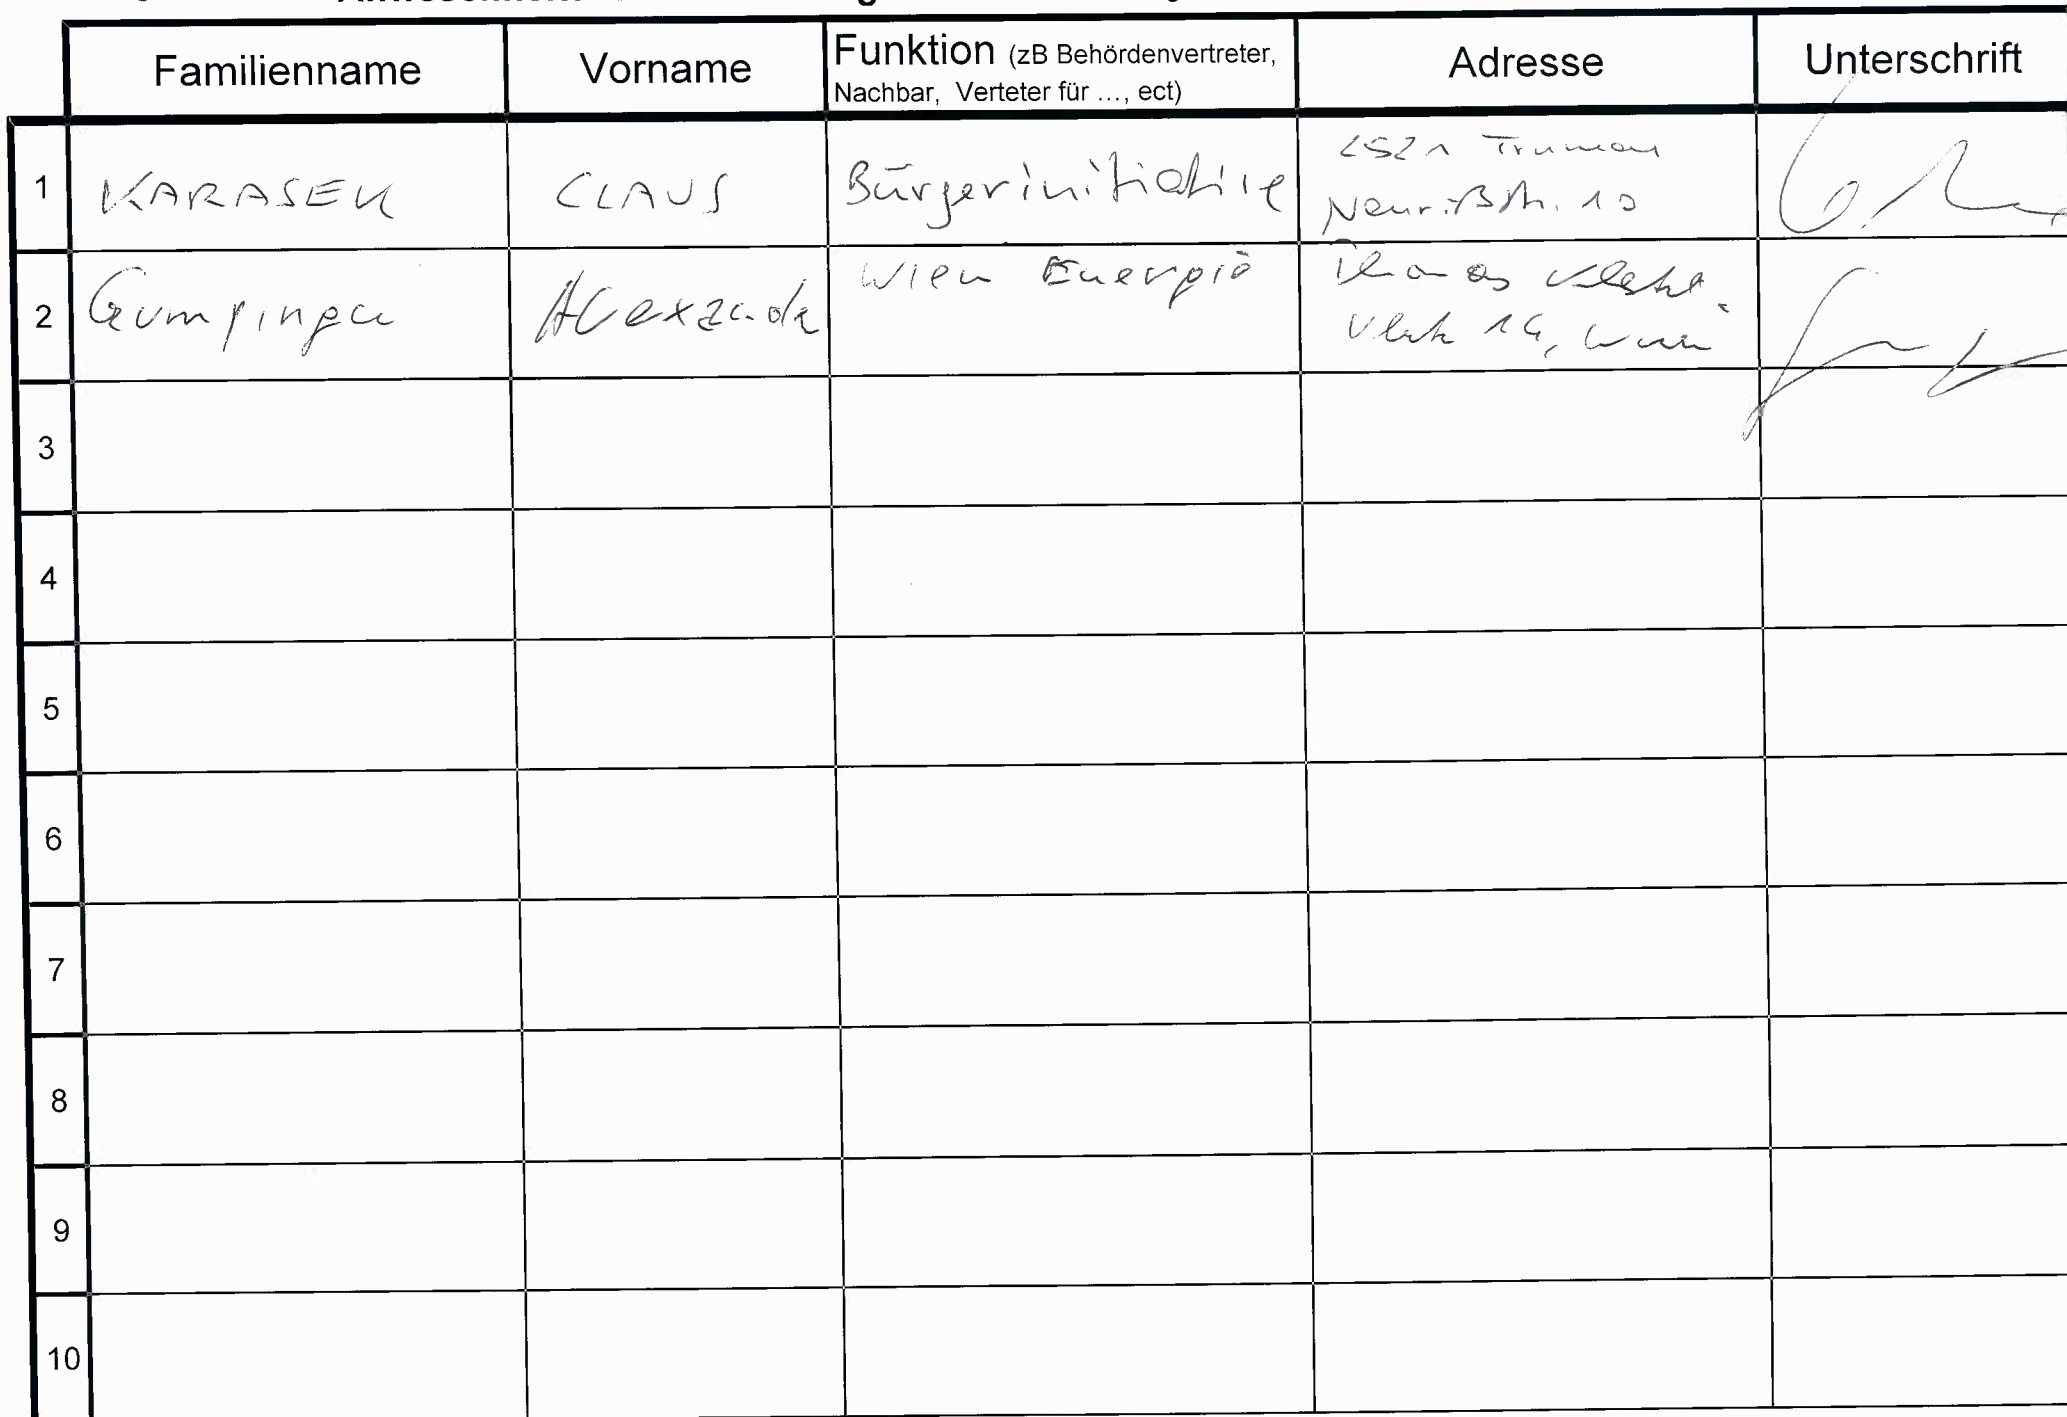 Familienname Vorname Funktion (zB Behördenvertreter, Adresse Unterschrift
Nachbar, Verteter für ..., ect)
1 KARASEK CLAUS Bürgerinitiative 2521 Trumau
Neurißstr. 10
2 Gumpinger Alexander Wien Energie Thomas Klestil-
Platz 14, Wien
3
4
5
6
7
8
9
10